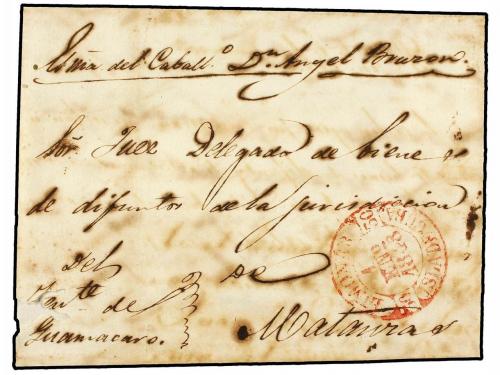 del Caball.o Dn Angel Bruzon.
Sor. Juez Delegado de bienes
de difuntos de la jurisdiccion
Del De
Tente de
Guamacaro. Matanzas